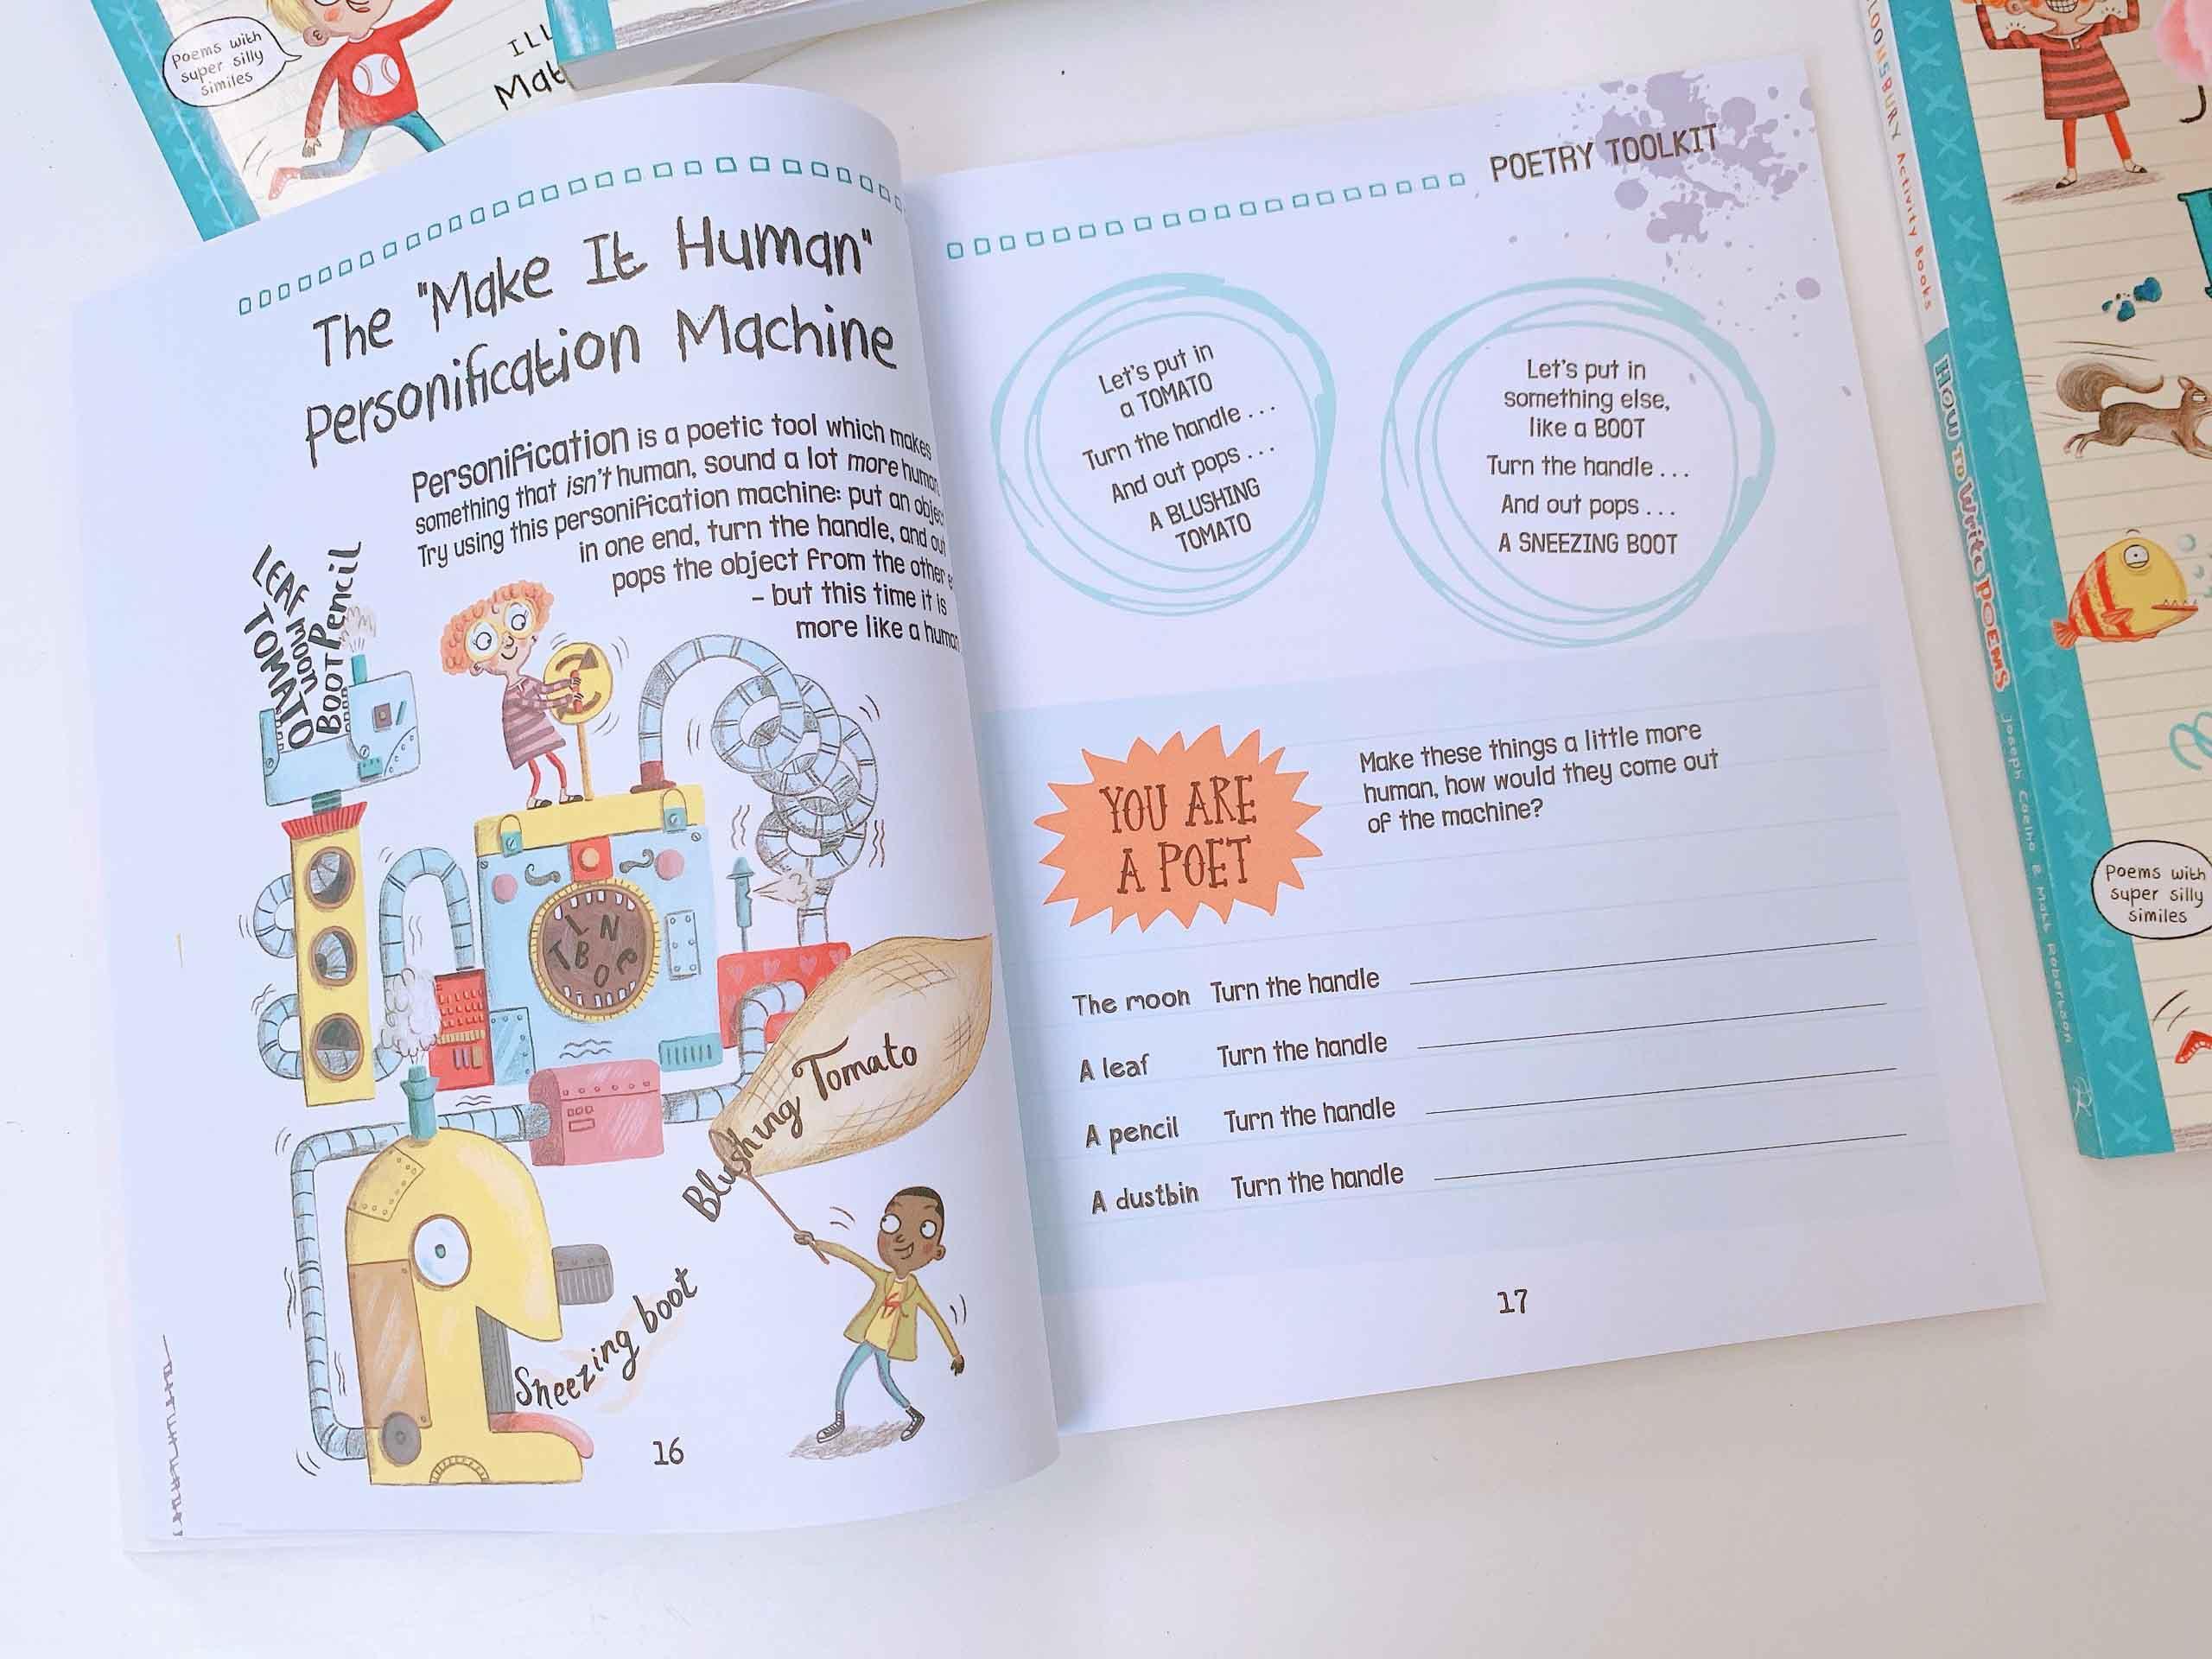 poems with
super silly
similes
ILL
Mat
The "Make It Human"
Personification Machine
Personification is a poetic tool which makes
something that isn't human, sound a lot more human.
Try using this personification machine: put an object
in one end, turn the handle, and out
pops the object from the other
– but this time it is
more like a human
LEAF
TOMATO
moon
BOOT
Pencil
T L N
B O e
Blushing Tomato
Sneezing boot
16
POETRY TOOLKIT
Let's put in
a TOMATO
Turn the handle . . .
And out pops . . .
A BLUSHING
TOMATO
Let's put in
something else,
like a BOOT
Turn the handle . . .
And out pops . . .
A SNEEZING BOOT
YOU ARE
A POET
Make these things a little more
human, how would they come out
of the machine?
The moon Turn the handle
A leaf Turn the handle
A pencil Turn the handle
A dustbin Turn the handle
17
BLOOMSBURY Activity Books
How to Write Poems
Joseph Coelho & Matt Robertson
Poems with
super silly
similes